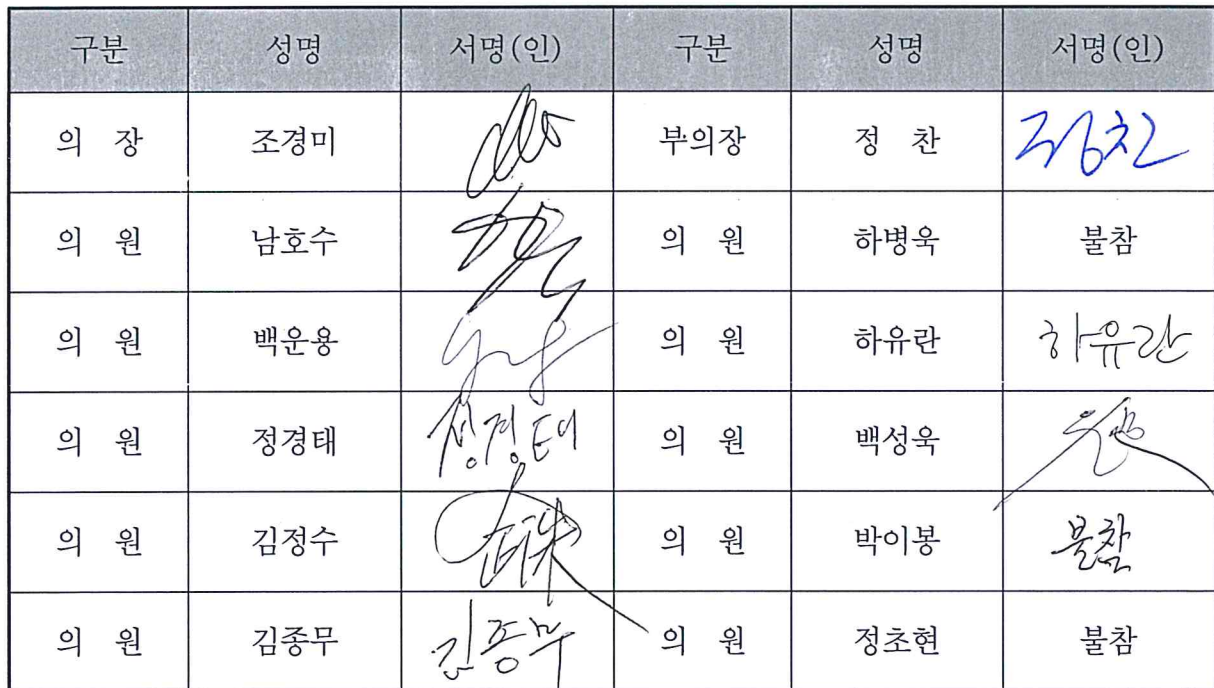 구분 성명 서명(인) 구분 성명 서명(인)
의 장 조경미 부의장 정 찬 정찬
의 원 남호수 의 원 하병욱 불참
의 원 백운용 의 원 하유란 하유란
의 원 정경태 정경태 의 원 백성욱
의 원 김정수 의 원 박이봉 불참
의 원 김종무 김종무 의 원 정초현 불참